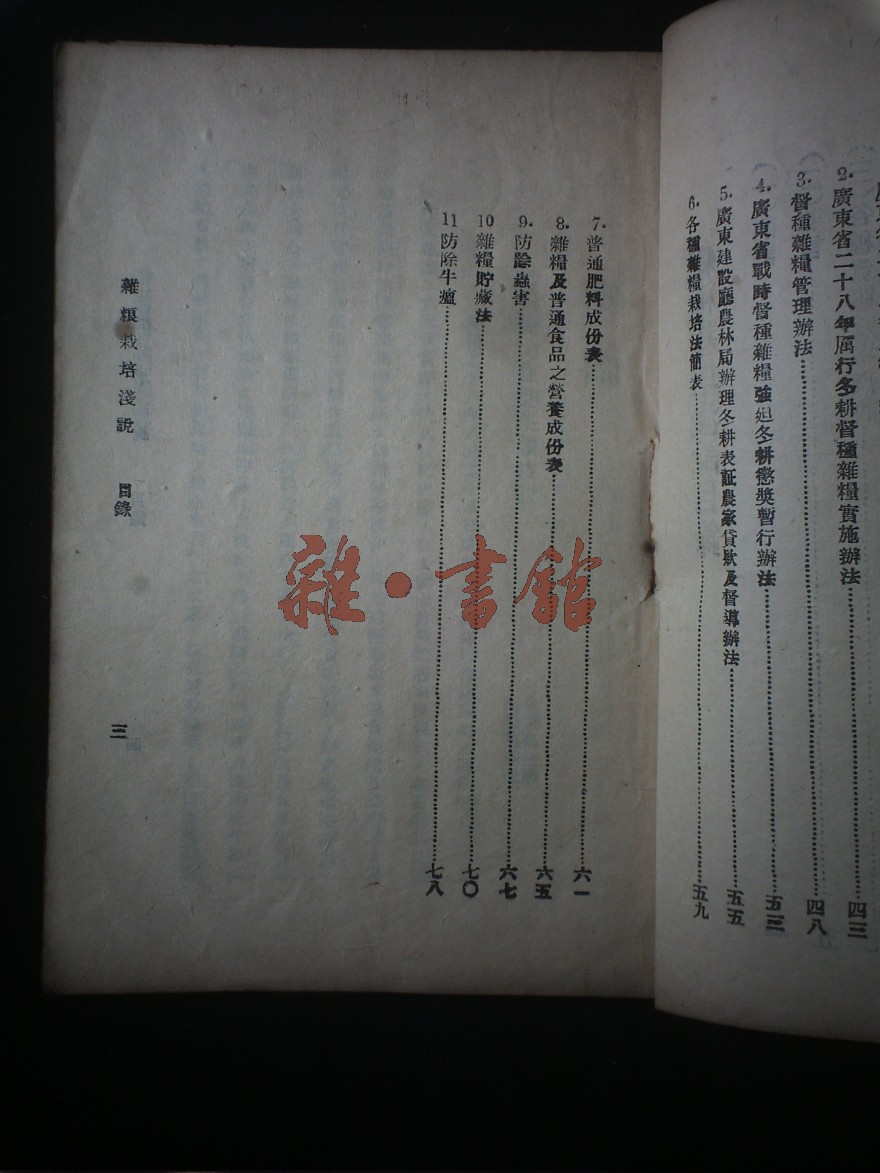 2. 廣東省二十八年厲行冬耕督種雜糧實施辦法……四三
3. 督種雜糧管理辦法……四八
4. 廣東省戰時督種雜糧強迫冬耕懲獎暫行辦法……五三
5. 廣東建設廳農林局辦理冬耕表証農家貸欵及督導辦法……五五
6. 各種雜糧栽培法簡表……五九
7. 普通肥料成份表……六一
8. 雜糧及普通食品之營養成份表……六五
9. 防除蟲害……六七
10 雜糧貯藏法……七〇
11 防除牛瘟……七八
雜粮栽培淺說 目錄
三
雜·書館